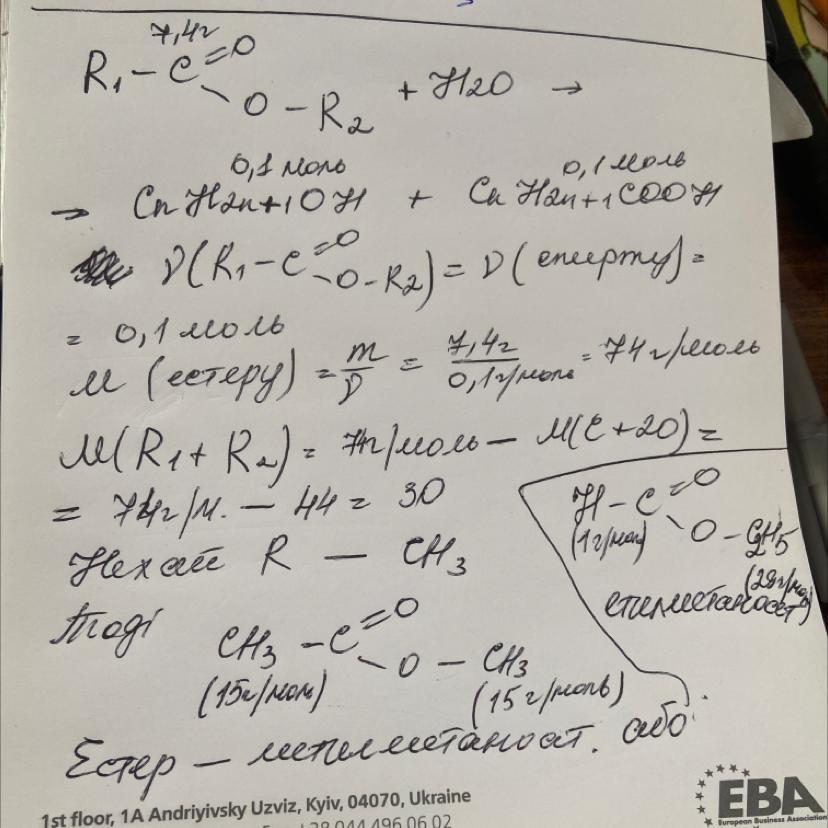 7,4г
R₁ – C =O
O – R₂ + H2O →
0,1 моль 0,1 моль
→ CnH2n+1OH + CnH2n+1COOH
ν(R₁–C =O –O–R₂) = ν( ) =
= 0,1 моль
M (естеру) = m/ν = 7,4г / 0,1г/моль = 74 г/моль
M(R₁+R₂) = 74г/моль – M(C+2O) =
= 74г/м. – 44 = 30
Нехай R – CH₃
Тоді
CH₃ – C =O
O – CH₃
(15г/моль) (15 г/моль)
Естер – метилметаноат. або:
H – C =O
(1г/моль) O – C2H5
(29г/моль)
етилметаноат
1st floor, 1A Andriyivsky Uzviz, Kyiv, 04070, Ukraine
+38 044 496 06 02
EBA
European Business Association